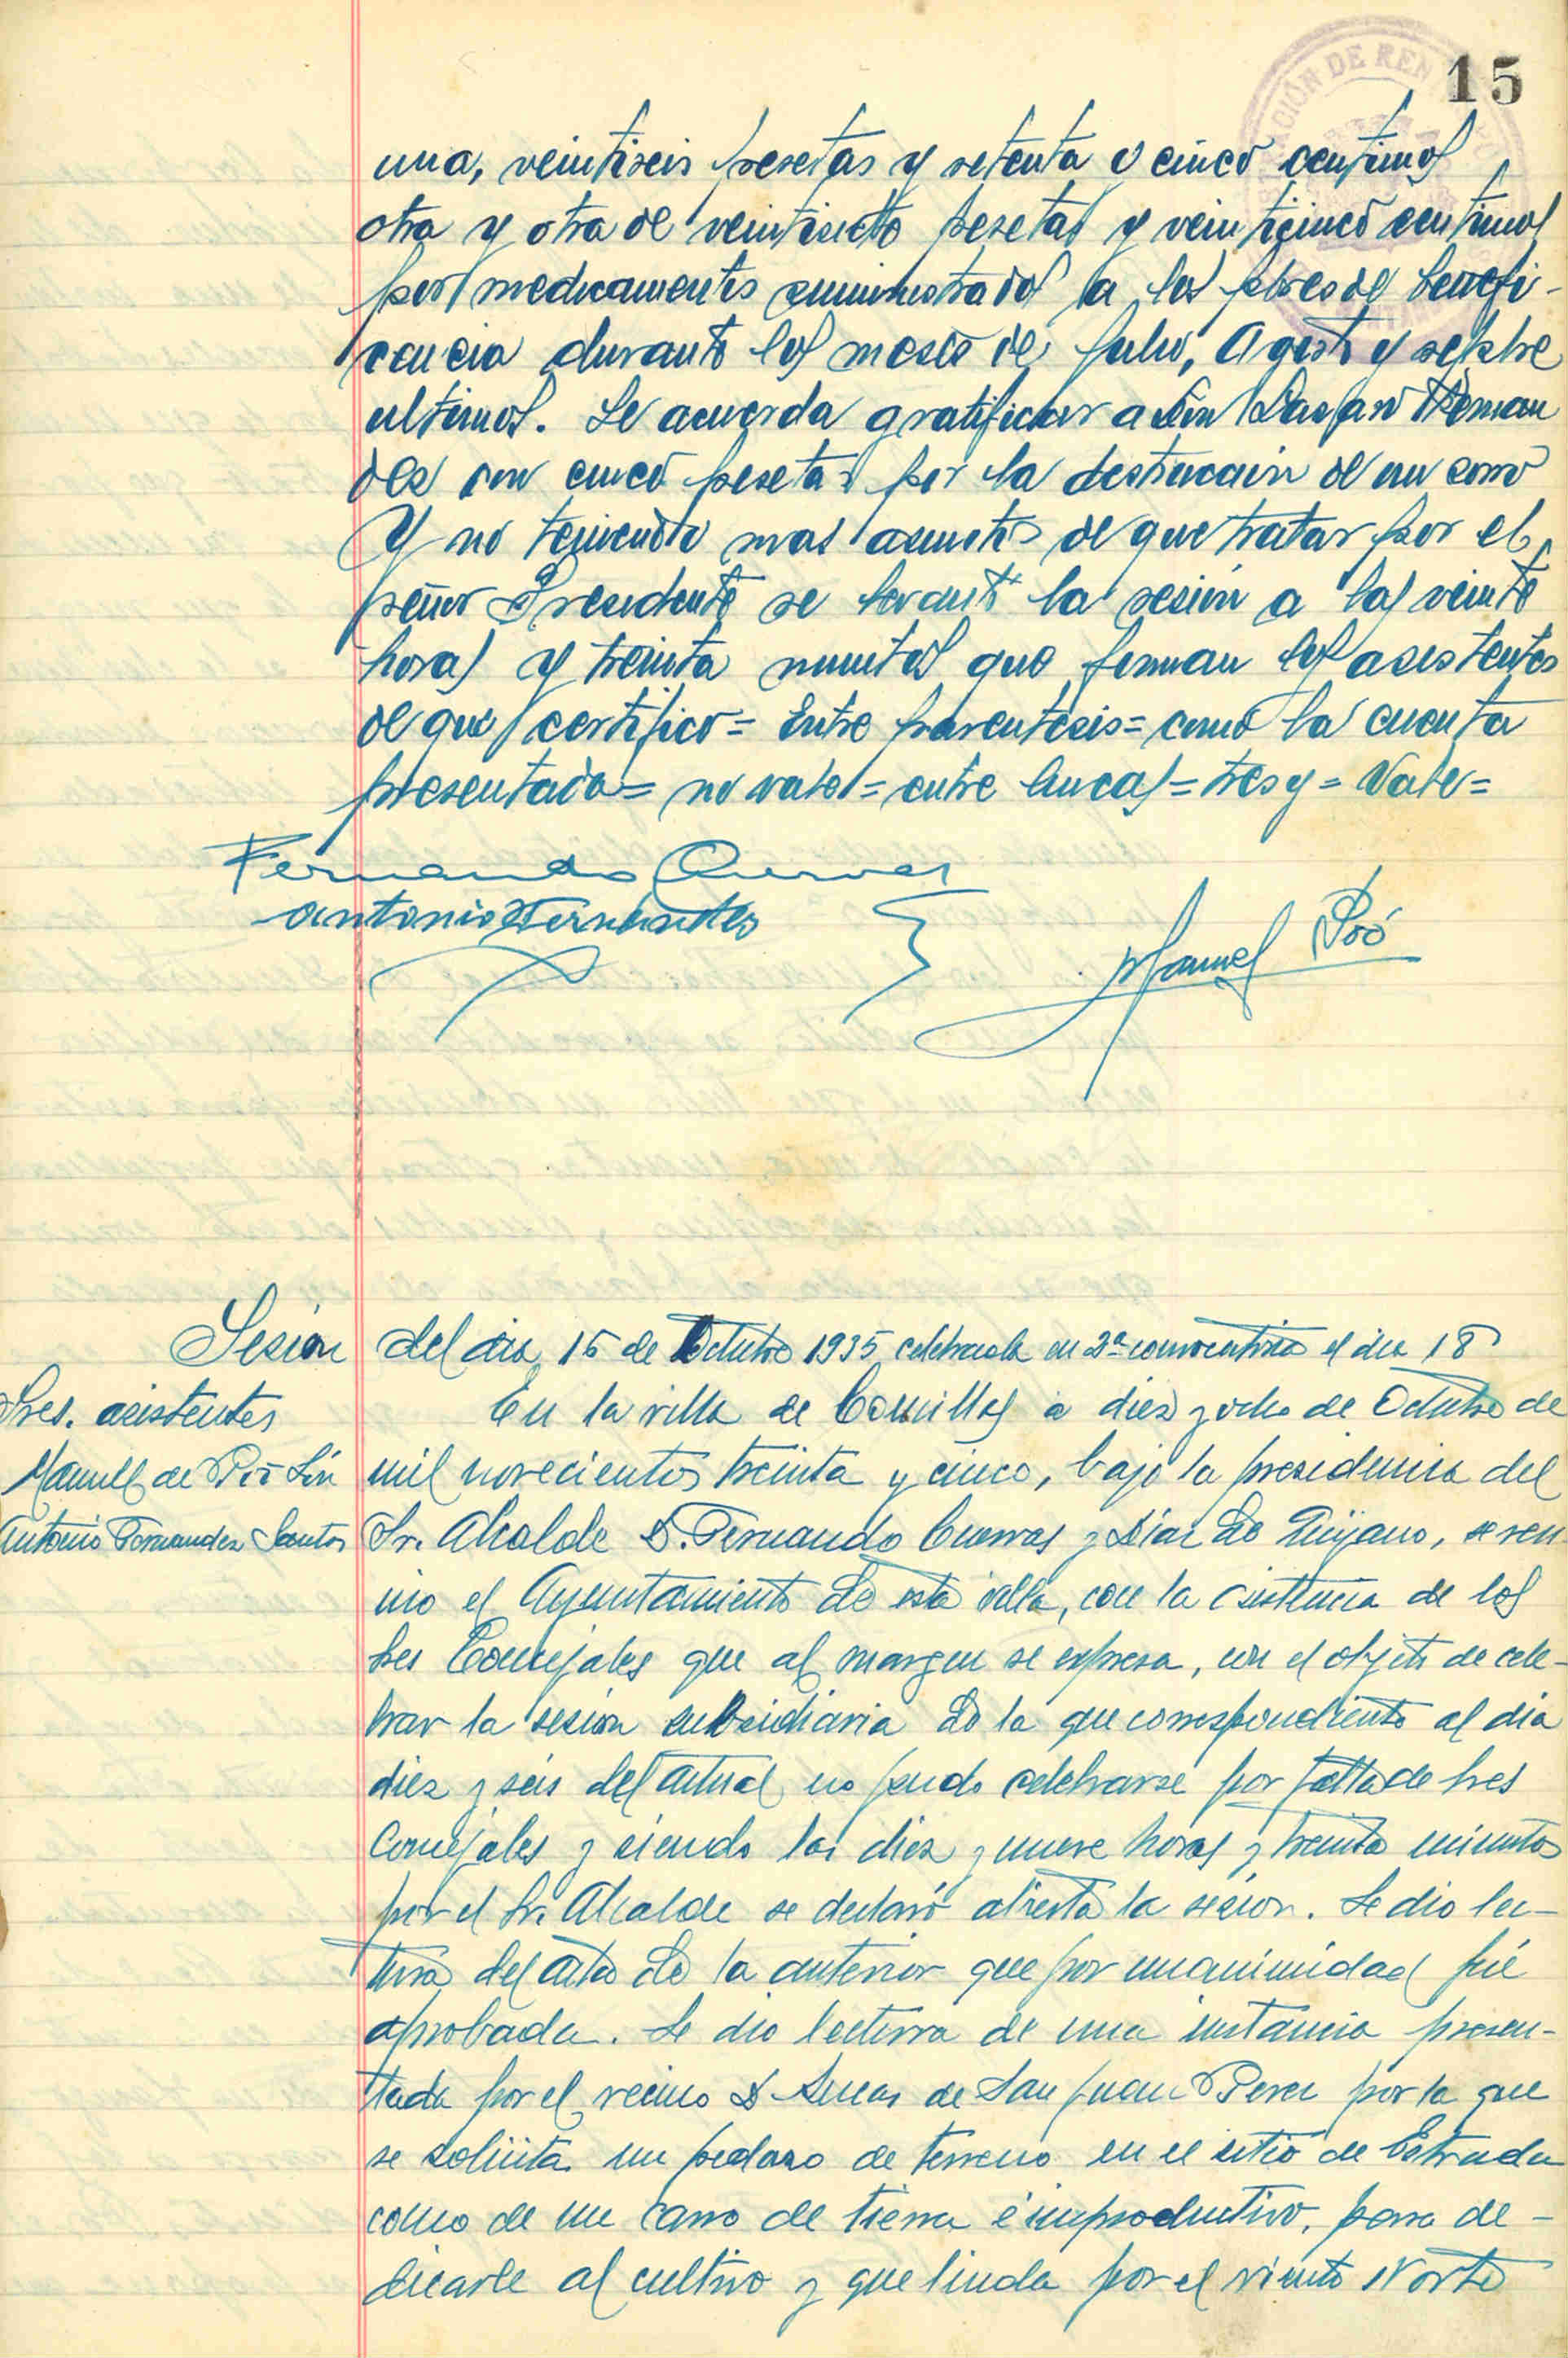 15
una, veintiseis pesetas y setenta y cinco centimos
otra y otra de veintisiete pesetas y veinticinco centimos
por medicamentos suministrados a los pobres de benefi-
cencia durante los meses de Julio, Agosto y sepbre
ultimos. Se acuerda gratificar a Don Fernan
dez con cinco pesetas por la destruccion de un zorro
Y no teniendo mas asuntos de que tratar por el
señor Presidente se levantó la sesión a las veinte
horas y treinta minutos que firman los asistentes
de que certifico = Entre parentesis = como la cuenta
presentada = no vale = entre lineas = tres y = Vale =
Fernando Cuevas
Antonio Fernandez
Manuel Poó
Sesión del dia 15 de Octubre 1935 celebrada en 2ª convocatoria el dia 18
Sres. asistentes
Manuel de Poó
Antonio Fernandez Santos
En la villa de Comillas a diez y ocho de Octubre de
mil novecientos treinta y cinco, bajo la presidencia del
Sr. Alcalde D. Fernando Cuevas y Diaz de Quijano, se reu-
nio el Ayuntamiento de esta villa, con la asistencia de los
Sres Concejales que al margen se expresa, con el objeto de cele-
brar la sesión subsidiaria de la que correspondiente al dia
diez y seis del actual no pudo celebrarse por falta de Sres
Concejales y siendo las diez y nueve horas y treinta minutos
por el Sr. Alcalde se declaró abierta la sesion. Se dio lec-
tura del acta de la anterior que por unanimidad fué
aprobada. Se dio lectura de una instancia presen-
tada por el vecino D Lucas de San Juan Perez por la que
se solicita un pedazo de terreno en el sitio de Estrada
como de un carro de tierra é improductivo, para de-
dicarle al cultivo y que linda por el viento Norte